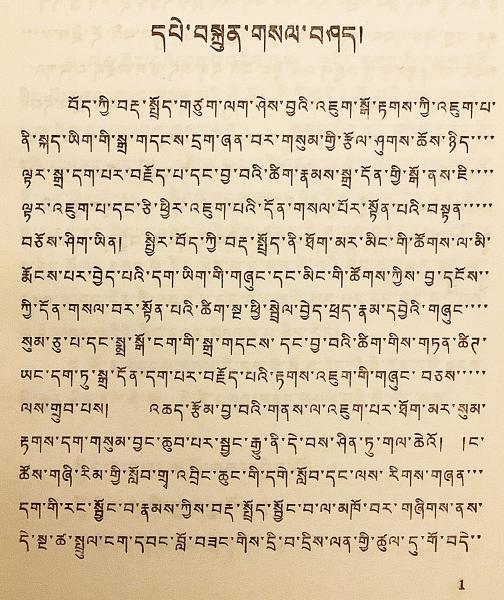 དཔེ་བསྐྲུན་གསལ་བཤད།
བོད་ཀྱི་བརྡ་སྤྲོད་གཙུག་ལག་ཤེས་བྱའི་འཇུག་སྒོ་རྟགས་ཀྱི་འཇུག་པ་
ནི་སྐད་ཡིག་གི་སྒྲ་གདངས་དྲག་ཞན་བར་གསུམ་གྱི་རྩོལ་ཤུགས་ཆོས་ཉིད་་་་
ལྟར་སྒྲ་དག་པར་བརྗོད་པ་དང་བྱ་བའི་ཚིག་རྣམས་སྒྲ་དོན་གྱི་སྒོ་ནས་ཇི་་་་
ལྟར་འཇུག་པ་དང་ཅི་ཕྱིར་འཇུག་པའི་དོན་གསལ་པོར་སྟོན་པའི་བསྟན་་་་་
བཅོས་ཤིག་ཡིན། སྤྱིར་བོད་ཀྱི་བརྡ་སྤྲོད་ནི་ཐོག་མར་མིང་གི་ཚོགས་ལ་མི་
རྨོངས་པར་བྱེད་པའི་དག་ཡིག་གི་གཞུང་དང་མིང་གི་ཚོགས་ཀྱིས་བྱ་དངོས་་
ཀྱི་དོན་གསལ་བར་སྟོན་པའི་ཚིག་སྔ་ཕྱི་སྦྲེལ་བྱེད་ཕྲད་རྣམ་དབྱེའི་གཞུང་་་་
སུམ་ཅུ་པ་དང་སྨྲ་སྒོ་ངག་གི་སྒྲ་གདངས་དང་བྱ་བའི་ཚིག་གིས་གཏན་ཚིཊ་
ཡང་དག་ཏུ་སྒྲ་དོན་དག་པར་བརྗོད་པའི་རྟགས་འཇུག་གི་གཞུང་བཅས་་་་་
ལས་གྲུབ་པས། འཆད་རྩོམ་བྱ་བའི་གནས་ལ་འཇུག་པར་ཐོག་མར་སུམ་
རྟགས་དག་གསུམ་བྱང་ཆུབ་པར་སྦྱང་རྒྱུ་ནི་དེ་བས་ཤིན་ཏུ་གལ་ཆེའོ། །ང་
ཚོས་གཞི་རིམ་གྱི་སློབ་གྲྭ་འབྲིང་ཆུང་གི་དགེ་སློབ་དང་ལས་རིགས་གཞན་་་
དག་གི་རང་སྦྱོང་བ་རྣམས་ཀྱིས་བརྡ་སྤྲོད་སྦྱོང་བ་ལ་མཁོ་བར་གཞིགས་ནས་
དེ་སྔ་ཚ་སྤྲུལ་ངག་དབང་བློ་བཟང་གིས་དྲི་བ་དྲིས་ལན་གྱི་ཚུལ་དུ་གོ་བདེ་་
1